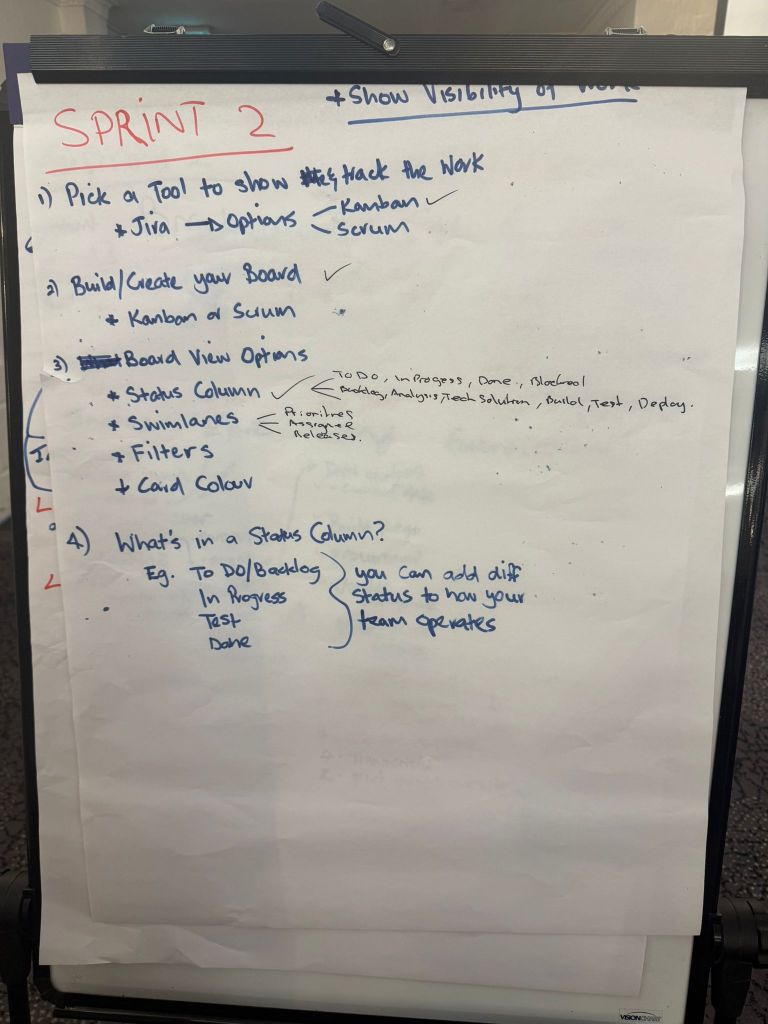 * Show Visibility of Work
SPRINT 2
1) Pick a Tool to show & track the Work
* Jira → Options
Kanban ✓
Scrum
2) Build/Create your Board ✓
* Kanban or Scrum
3) Board View Options
* Status Column ✓
To Do, In Progess, Done, Blocked
Backlog, Analysis, Tech Solution, Build, Test, Deploy.
* Swimlanes
Priorities
Assignee
Releases.
* Filters
* Card Colour
4) What's in a Status Column?
Eg. To DO/Backlog
In Progress
Test
Done
you can add diff
status to how your
team operates
VISIONCHART